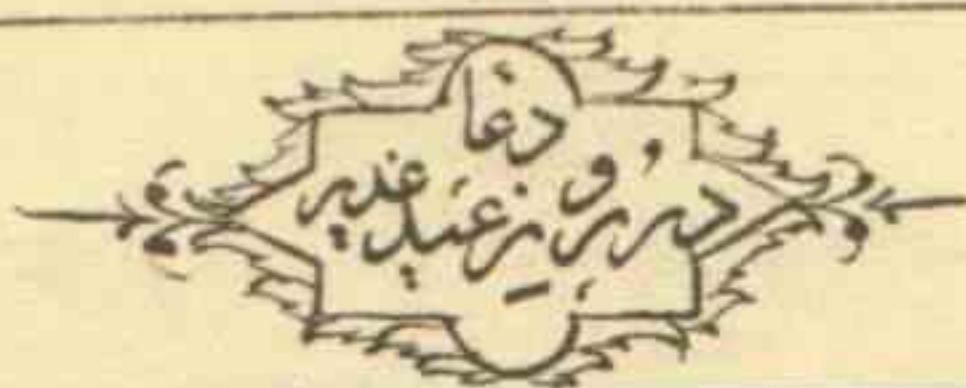 دعا
در روز عید غدیر